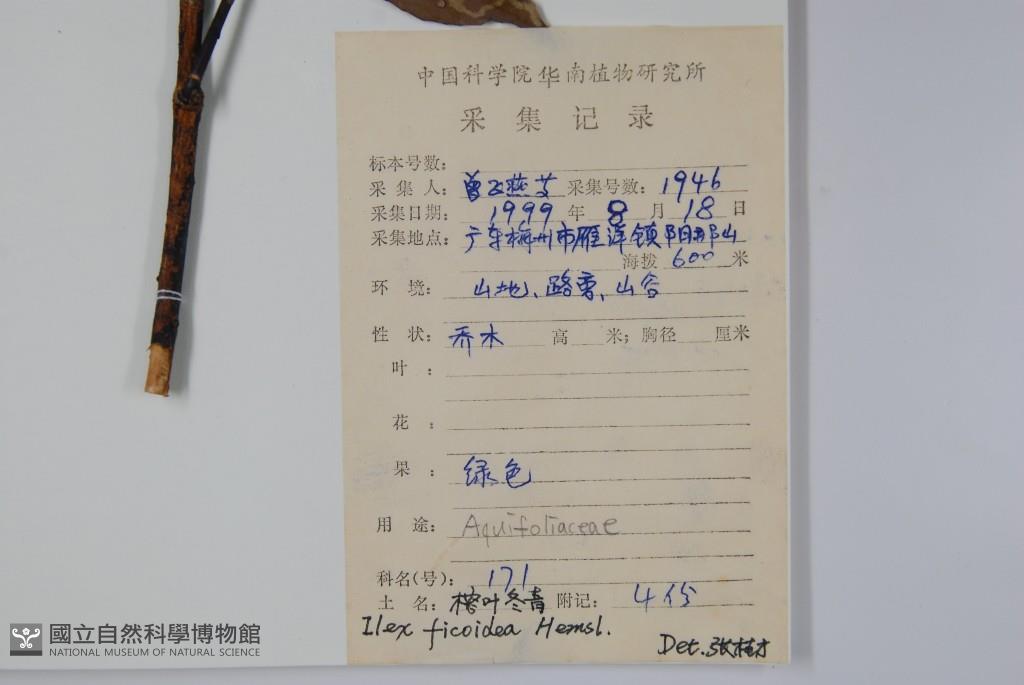 中国科学院华南植物研究所
采集记录
标本号数：
采集人：曾飞燕 采集号数：1946
采集日期：1999年8月18日
采集地点：广东梅州市雁洋镇阴那山
海拨 600 米
环境：山地、路旁、山谷
性状：乔木 高 米；胸径 厘米
叶：
花：
果：绿色
用途：Aquifoliaceae
科名(号)：171
土名：榕叶冬青 附记：4份
Ilex ficoidea Hemsl.
Det. 张桂才
國立自然科學博物館
NATIONAL MUSEUM OF NATURAL SCIENCE